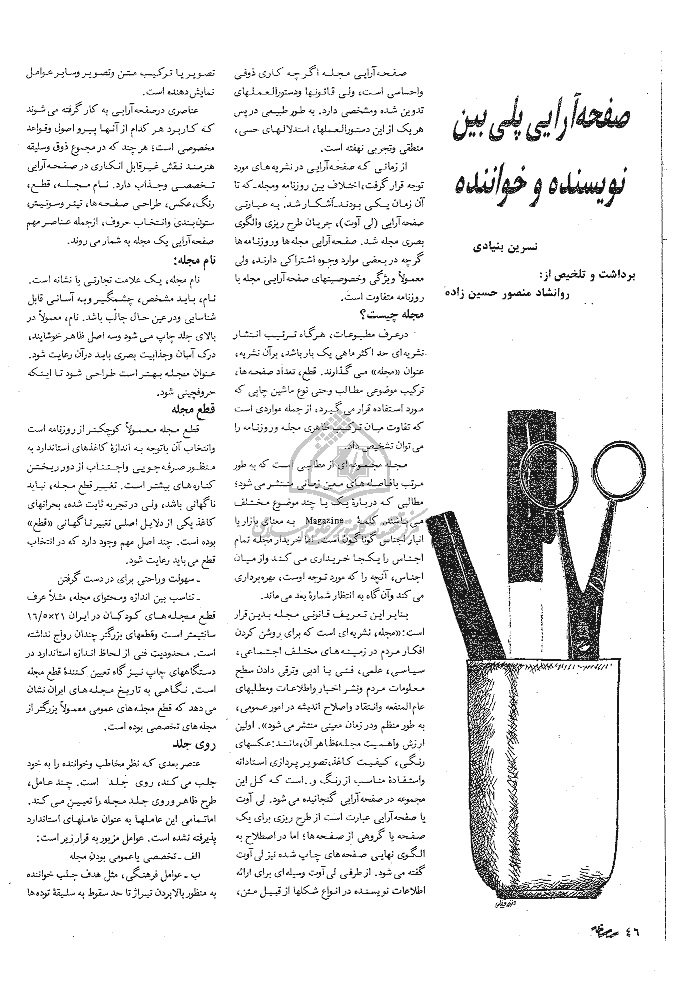 صفحه‌آرایی پلی بین
نویسنده و خواننده
نسرین بنیادی
برداشت و تلخیص از:
روانشاد منصور حسین زاده
صفحه آرایی مجله اگر چه کاری ذوقی
واحساسی است، ولی قانونها ودستورالعملهای
تدوین شده ومشخصی دارد. به طور طبیعی در پس
هر یک از این دستورالعملها، استدلالهای حسی،
منطقی وتجربی نهفته است.
از زمانی که صفحه‌آرایی در نشریه‌های مورد
توجه قرار گرفت، اختلاف بین روزنامه ومجله ـ که تا
آن زمان یکی بودند ـ آشکار شد. به عبارتی
صفحه‌آرایی (لی آوت)، جریان طرح ریزی والگوی
بصری مجله شد. صفحه‌آرایی مجله‌ها وروزنامه‌ها
گرچه در بعضی موارد وجوه اشتراکی دارند، ولی
معمولاً ویژگی وخصوصیتهای صفحه‌آرایی مجله با
روزنامه متفاوت است.
مجله چیست؟
در عرف مطبوعات، هرگاه ترتیب انتشار
نشریه‌ای حد اکثر ماهی یک بار باشد، بر آن نشریه،
عنوان «مجله» می گذارند. قطع، تعداد صفحه‌ها،
ترکیب موضوعی مطالب وحتی نوع ماشین چاپی که
مورد استفاده قرار می گیرد، از جمله مواردی است
که تفاوت میان ترکیب ظاهری مجله وروزنامه را
می توان تشخیص داد.
مجله مجموعه‌ای از مطالبی است که به طور
مرتب با فاصله های معین زمانی منتشر می شود؛
مطالبی که دربارهٔ یک یا چند موضوع مختلف
می باشند. کلمهٔ Magazine به معنای بازار یا
انبار اجناس گوناگون است. اما خریدار مجله تمام
اجناس را یکجا خریداری می کند واز میان
اجناس، آنچه را که مورد توجه اوست، بهره‌برداری
می کند وآن گاه به انتظار شمارهٔ بعد می ماند.
بنابر این تعریف قانونی مجله بدین قرار
است: «مجله، نشریه‌ای است که برای روشن کردن
افکار مردم در زمینه‌های مختلف اجتماعی،
سیاسی، علمی، فنی یا ادبی وترقی دادن سطح
معلومات مردم ونشر اخبار واطلاعات ومطلبهای
عام‌المنفعه وانتقاد واصلاح اندیشه در امور عمومی،
به طور منظم ودر زمان معینی منتشر می شود». اولین
ارزش واهمیت مجله، ظاهر آن، مانند: عکسهای
رنگی، کیفیت کاغذ، تصویر پردازی استادانه
واستفادهٔ مناسب از رنگ و.. است که کل این
مجموعه در صفحه‌آرایی گنجانیده می شود. لی آوت
یا صفحه‌آرایی عبارت است از طرح ریزی برای یک
صفحه یا گروهی از صفحه‌ها؛ اما در اصطلاح به
الگوی نهایی صفحه‌های چاپ شده نیز لی آوت
گفته می شود. از طرفی لی آوت وسیله‌ای برای ارائه
اطلاعات نویسنده در انواع شکلها از قبیل متن،
تصویر یا ترکیب متن وتصویر وسایر عوامل
نمایش دهنده است.
عناصری در صفحه‌آرایی به کار گرفته می شوند
که کاربرد هر کدام از آنها پیرو اصول وقواعد
مخصوصی است؛ هر چند که در مجموع ذوق وسلیقه
هنرمند نقش غیرقابل انکاری در صفحه‌آرایی
تخصصی وجذاب دارد. نام مجله، قطع،
رنگ، عکس، طراحی صفحه‌ها، تیتر وسوتیتر،
ستون‌بندی وانتخاب حروف، ازجمله عناصر مهم
صفحه‌آرایی یک مجله به شمار می روند.
نام مجله:
نام مجله، یک علامت تجارتی یا نشانه است.
نام، باید مشخص، چشمگیر وبه آسانی قابل
شناسایی ودر عین حال جالب باشد. نام، معمولاً در
بالای جلد چاپ می شود وسه اصل ظاهر خوشایند،
درک آسان وجذابیت بصری باید در آن رعایت شود.
عنوان مجله بهتر است طراحی شود تا اینکه
حروفچینی شود.
قطع مجله
قطع مجله معمولاً کوچکتر از روزنامه است
وانتخاب آن باتوجه به اندازهٔ کاغذهای استاندارد به
منظور صرفه‌جویی واجتناب از دور ریختن
کناره های بیشتر است. تغییر قطع مجله، نباید
ناگهانی باشد، ولی در تجربه ثابت شده، بحرانهای
کاغذ یکی از دلایل اصلی تغییر ناگهانی «قطع»
بوده است. چند اصل مهم وجود دارد که در انتخاب
قطع می باید رعایت شود.
ـ سهولت وراحتی برای در دست گرفتن
ـ تناسب بین اندازه ومحتوای مجله، مثلاً عرف
قطع مجله‌های کودکان در ایران ۲۱×۱۶/۵
سانتیمتر است وقطعهای بزرگتر چندان رواج نداشته
است. محدودیت فنی از لحاظ اندازه استاندارد در
دستگاههای چاپ نیز گاه تعیین کنندهٔ قطع مجله
است. نگاهی به تاریخ مجله‌های ایران نشان
می دهد که قطع مجله‌های عمومی معمولاً بزرگتر از
مجله‌های تخصصی بوده است.
روی جلد
عنصر بعدی که نظر مخاطب وخواننده را به خود
جلب می کند، روی جلد است. چند عامل،
طرح ظاهر وروی جلد مجله را تعیین می کند.
اما تمامی این عاملها به عنوان عاملهای استاندارد
پذیرفته نشده است. عوامل مزبور به قرار زیر است:
الف ـ تخصصی یا عمومی بودن مجله
ب ـ عوامل فرهنگی، مثل هدف جلب خواننده
به منظور بالا بردن تیراژ تا حد سقوط به سلیقهٔ توده ها
۴۶